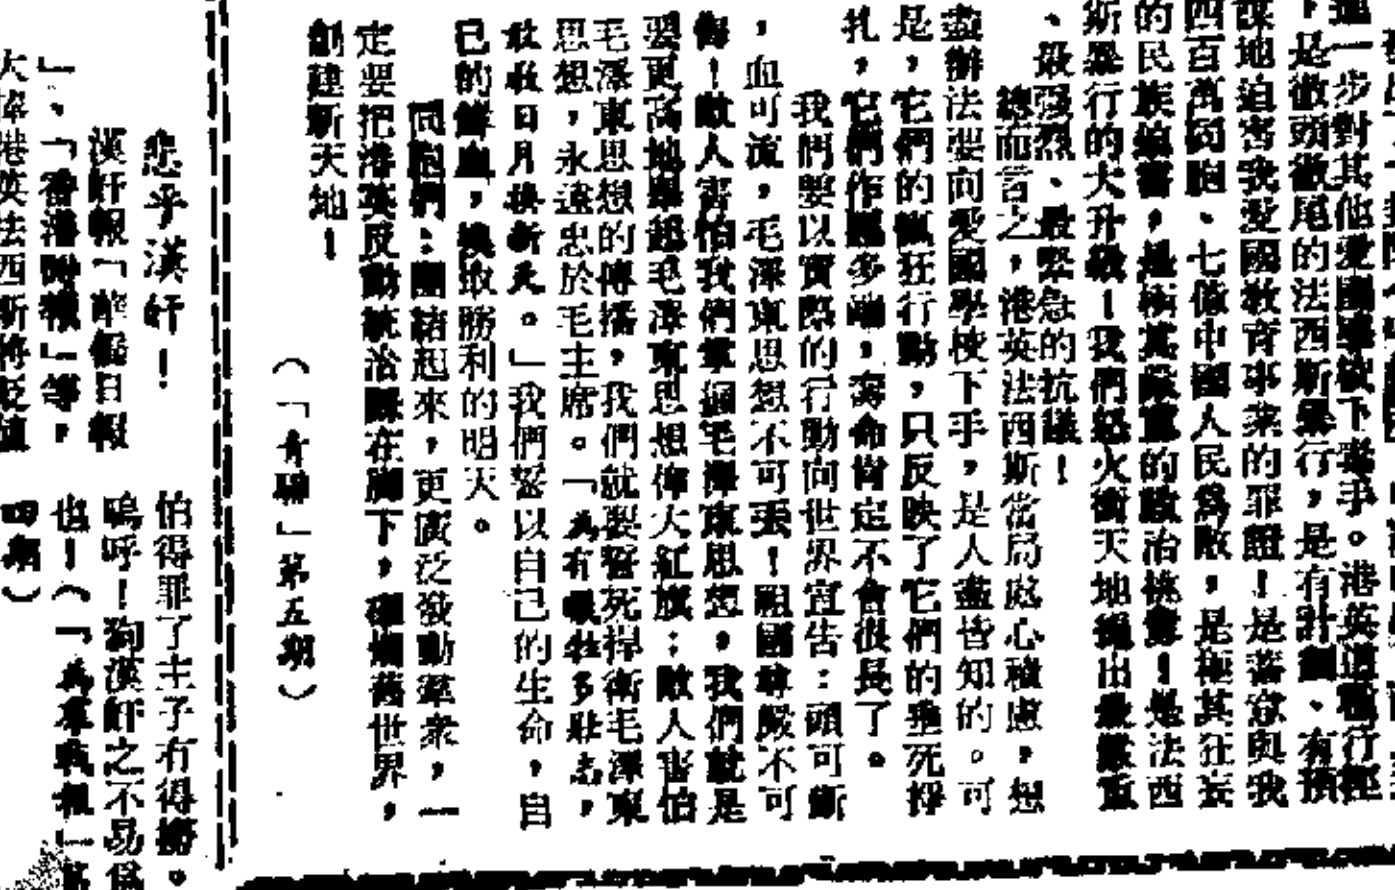 進一步對其他愛國學校下毒手。港英這種行徑
，是徹頭徹尾的法西斯暴行，是有計劃、有預
謀地迫害我愛國教育事業的罪證！是蓄意與我
四百萬同胞、七億中國人民爲敵，是極其狂妄
的民族迫害，是極其嚴重的政治挑釁！是法西
斯暴行的大升級！我們怒火衝天地提出最嚴重
、最强烈、最緊急的抗議！
總而言之，港英法西斯當局處心積慮，想
盡辦法要向愛國學校下手，是人盡皆知的。可
是，它們的瘋狂行動，只反映了它們的垂死掙
扎，它們作惡多端，壽命肯定不會很長了。
我們要以實際的行動向世界宣告：頭可斷
，血可流，毛澤東思想不可丟！祖國尊嚴不可
侮！敵人害怕我們掌握毛澤東思想，我們就是
要更高地舉起毛澤東思想偉大紅旗；敵人害怕
毛澤東思想的傳播，我們就要誓死捍衛毛澤東
思想，永遠忠於毛主席。「爲有犧牲多壯志，
敢敎日月換新天。」我們誓以自己的生命，自
己的鮮血，換取勝利的明天。
同胞們：團結起來，更廣泛發動羣衆，一
定要把港英反動統治踩在脚下，砸爛舊世界，
創建新天地！
（「青聯」第五期）
悲乎漢奸！
漢奸報「華僑日報
」、「香港時報」等，
大捧港英法西斯將
怕得罪了主子有得撈。
嗚呼！狗漢奸之不易爲
也！（「爲革戰報」第
四期）